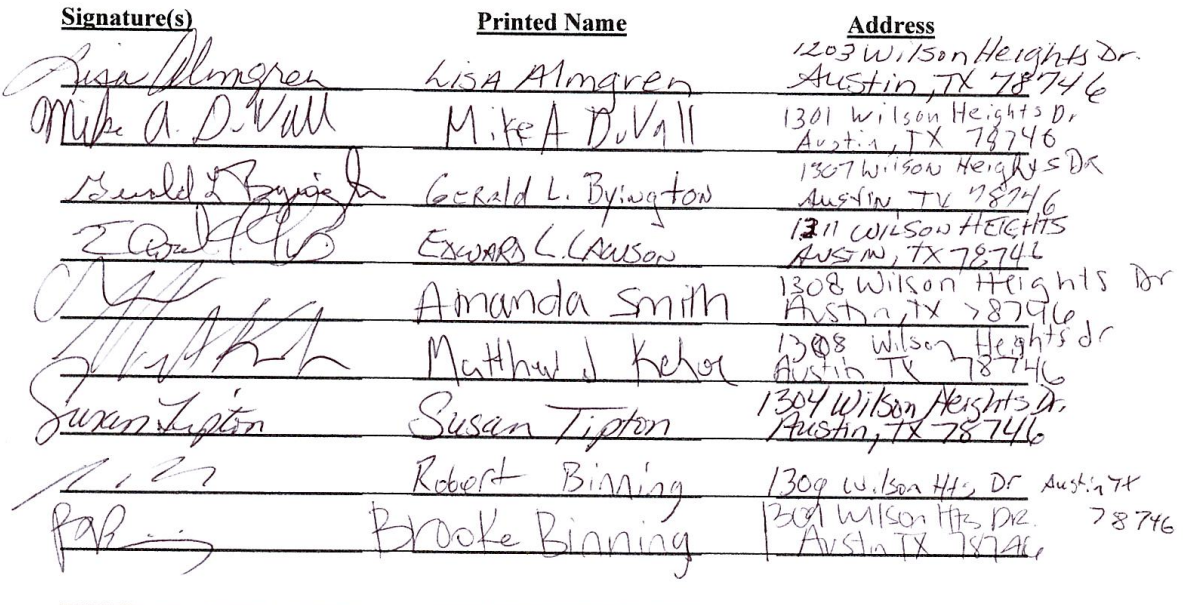 Signature(s) Printed Name Address
Lisa Almgren LisA Almgren 1203 Wilson Heights Dr.
Austin, TX 78746
Mike A. DuVall Mike A DuVall 1301 Wilson Heights Dr
Austin, TX 78746
Gerald L. Byington 1307 Wilson Heights DR
Austin, TX 78746
EDWARD L. LAWSON 1311 WILSON HEIGHTS
AUSTIN, TX 78746
Amanda Smith 1308 Wilson Heights Dr
Austin, TX 78746
Matthew J Kehoe 1308 Wilson Heights dr
Austin TX 78746
Susan Tipton Susan Tipton 1304 Wilson Heights Dr.
Austin, TX 78746
Robert Binning 1309 Wilson Hts Dr Austin TX
78746
Brooke Binning 1309 Wilson Hts DR.
Austin TX 78746